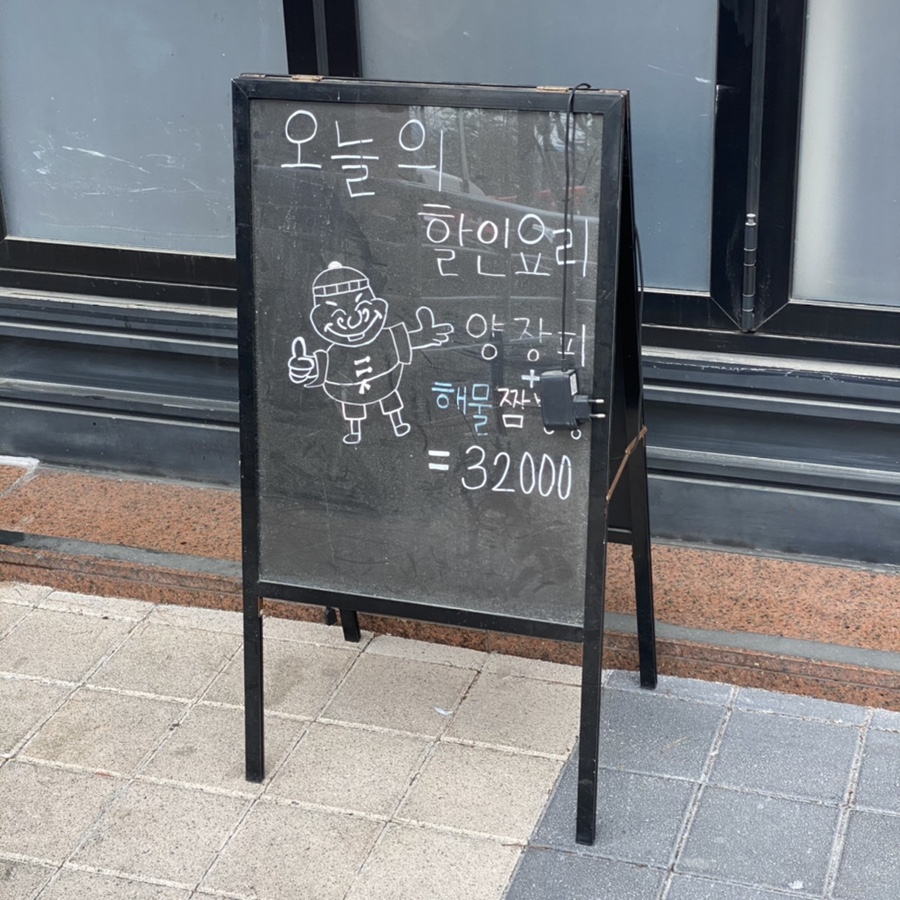 오늘의
할인요리
양장피
+
해물짬뽕
= 32000